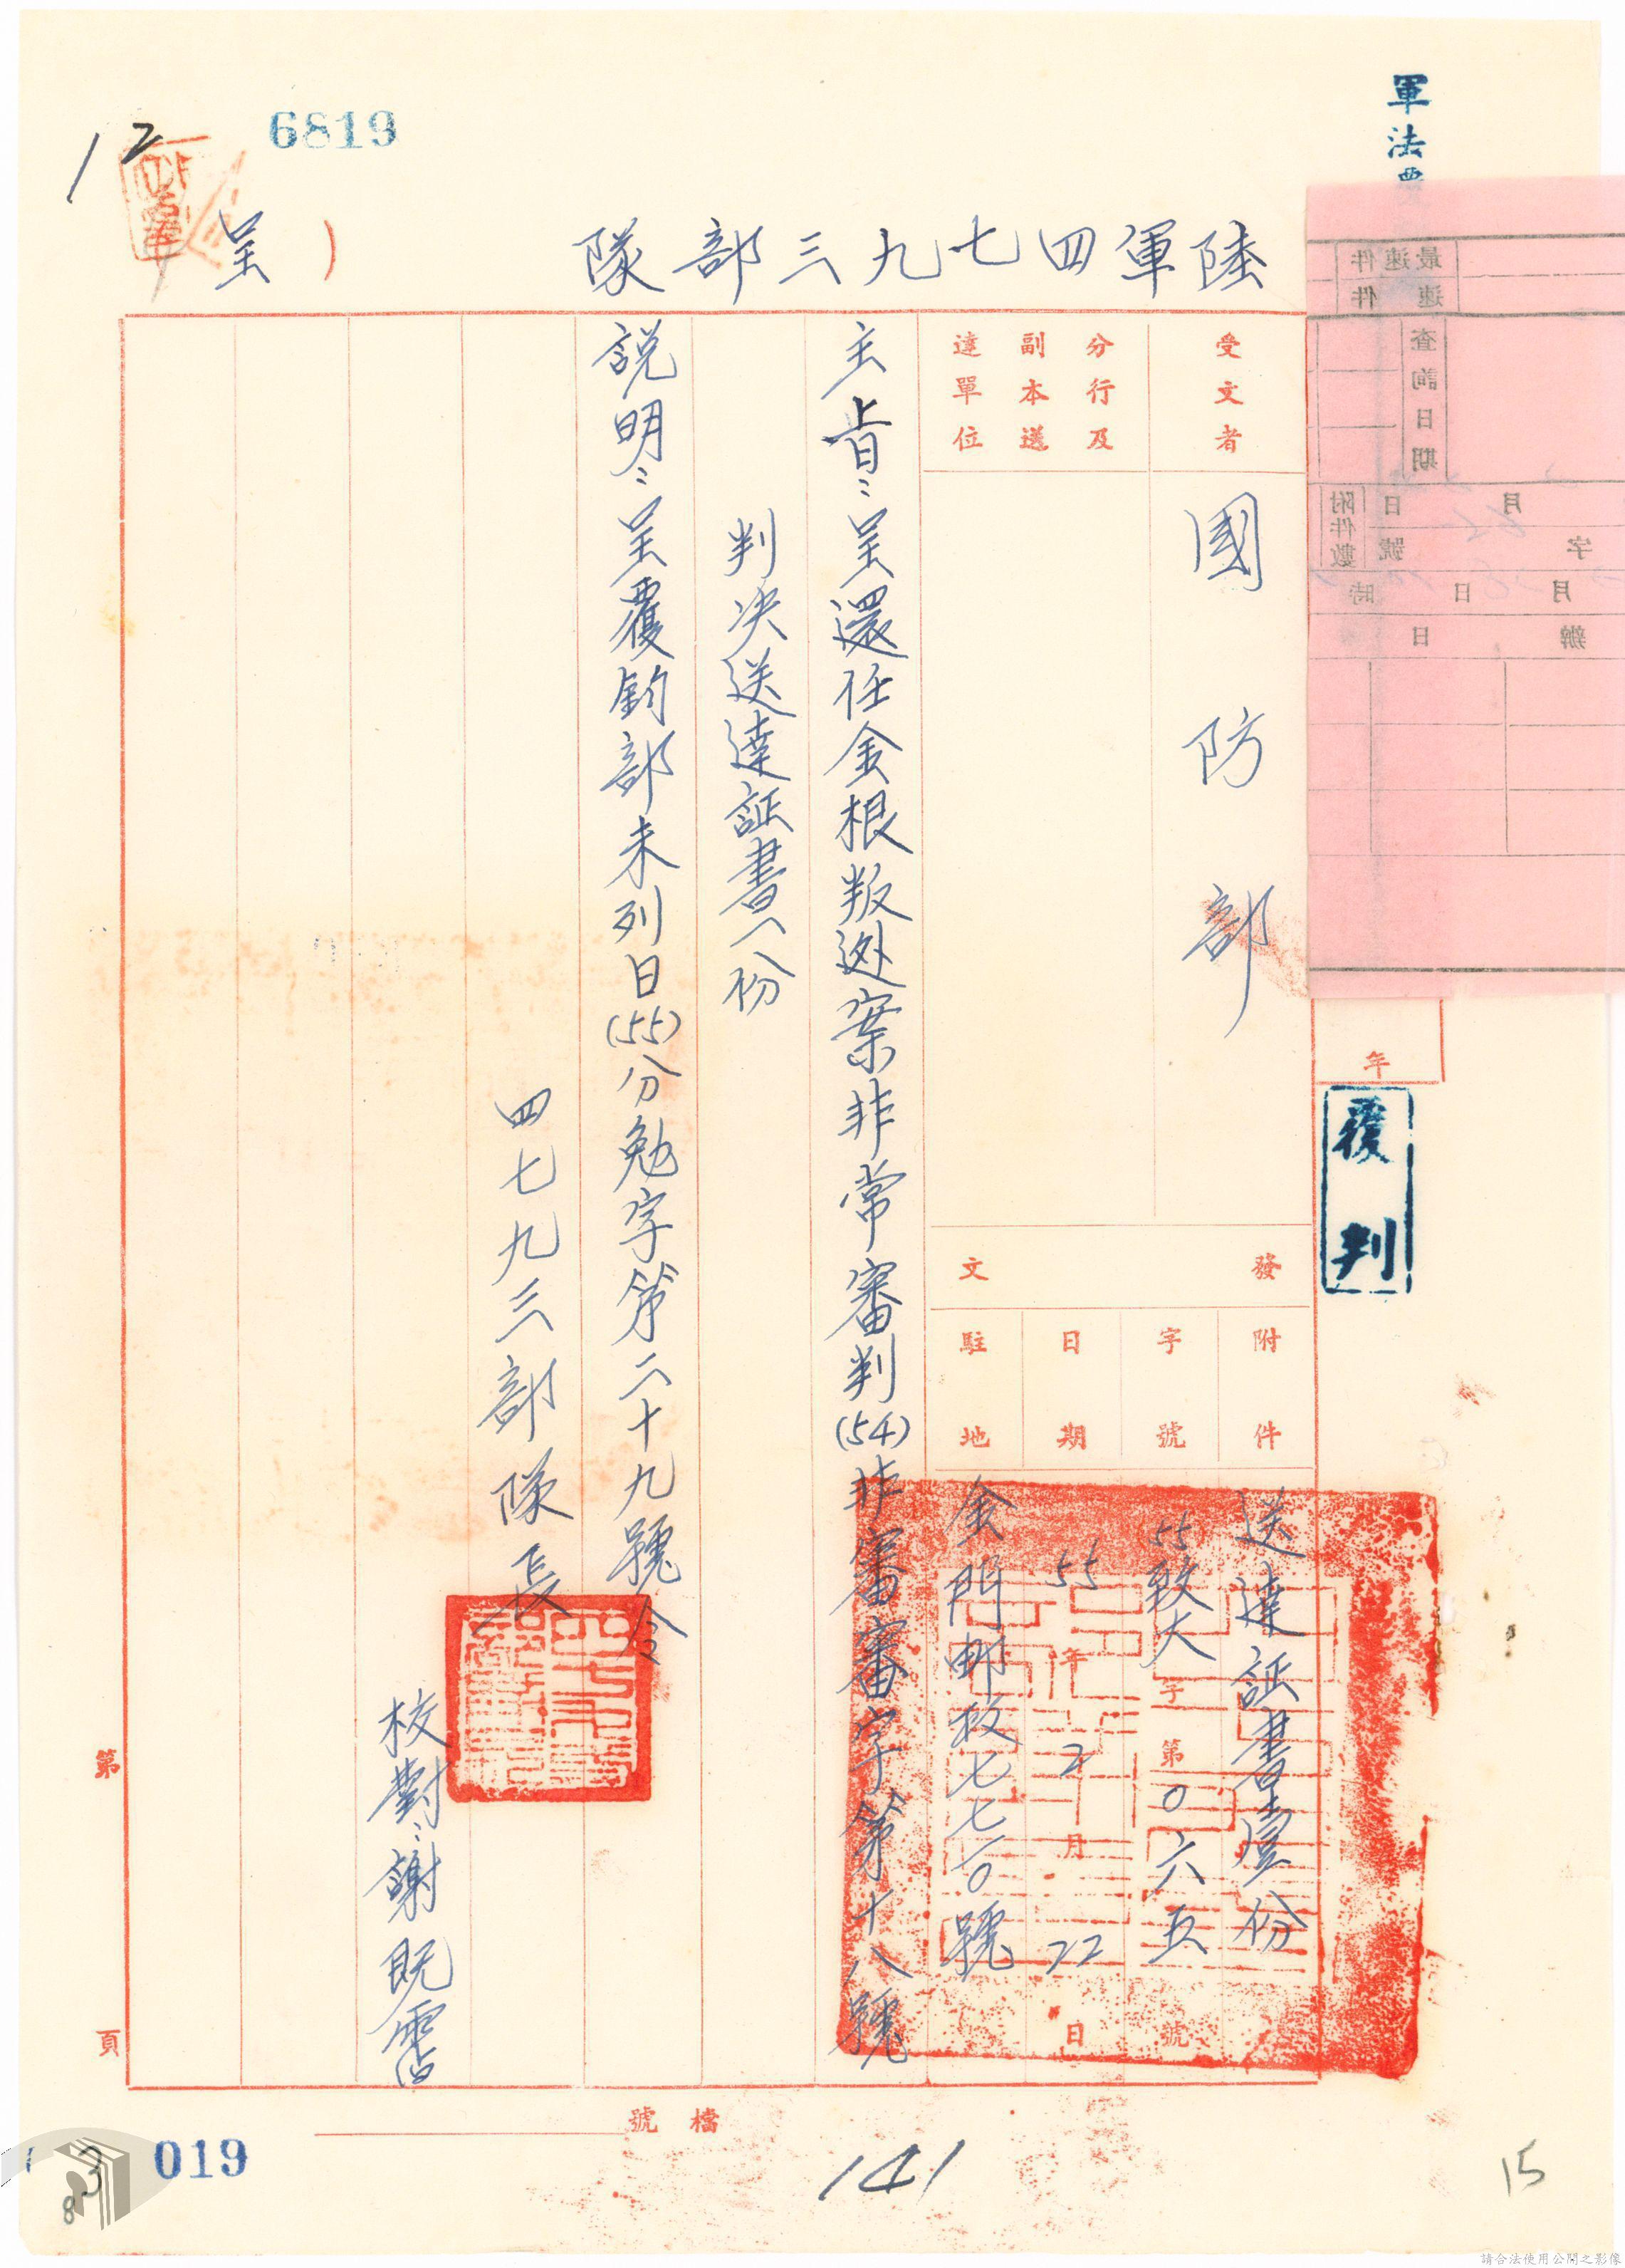 軍法
6819
12
陸軍四七九三部隊
呈
最速件
速件
查詢日期
月 日
附件數
字 號
月 日 時
辦 日
年
覆判
受文者
國防部
分行及
副本送
達單位
發文
附件
送達証書壹份
字號
55致大字第0六五號
日期
55年2月22日
駐地
金門郵政七七一0號
主旨:呈還任金根叛逆案非常審判(54)非審審字第十八號
判決送達証書八份
說明:呈覆鈞部未列日(55)分勉字第二十九號令
四七九三部隊長
校對:謝既霑
第 頁
檔號
141
15
019
3
8
請合法使用公開之影像